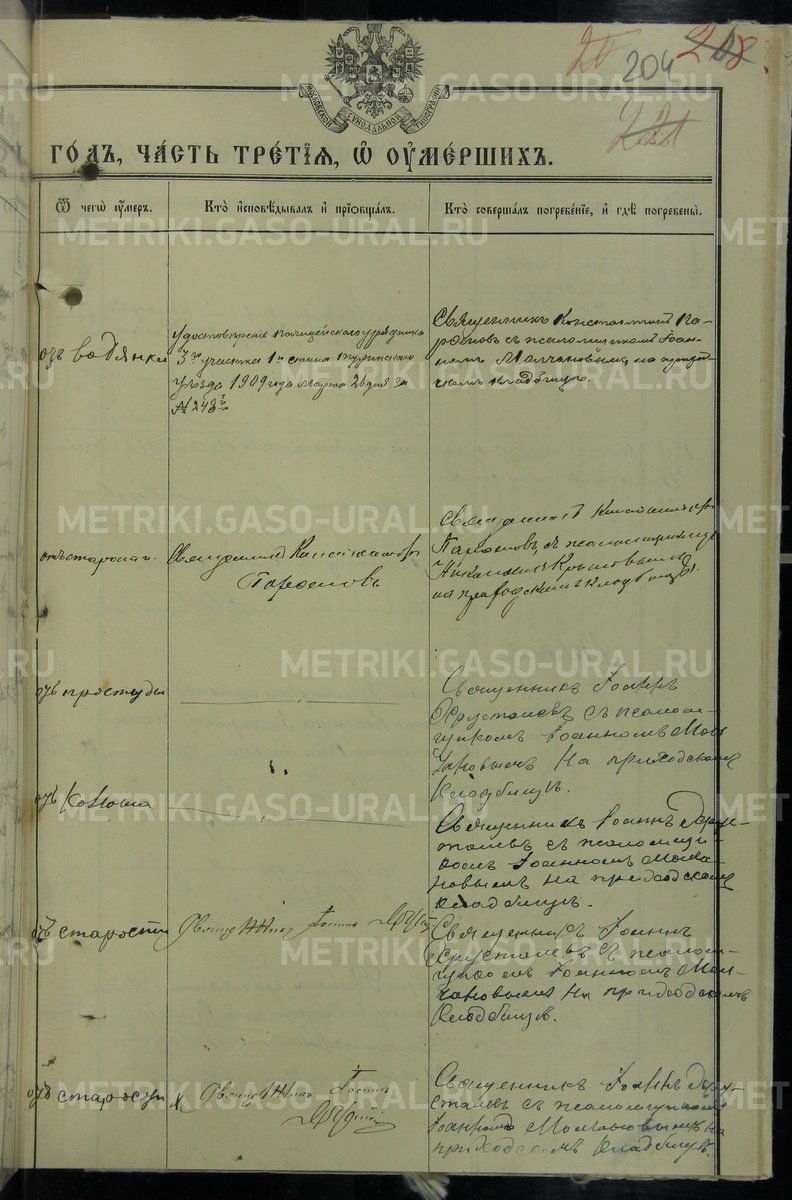 204
МОСКОВСКОЙ СѴНОДАЛЬНОЙ ТИПОГРАФІИ
го́дъ, ча́сть тре́тїѧ, ѡ҆ ᲂу҆ме́ршихъ.
Ѿ чегѡ̀ ᲂу҆́меръ.
Кто̀ и҆сповѣ́дывалъ и҆ прїѡбща́лъ.
Кто̀ соверша́лъ погребе́нїе, и҆ гдѣ̀ погребены̀.
отъ водянки
Удостовѣреніе полицейскаго урядника
3го участка 1го стана Туринскаго
уѣзда 1909 года марта 26 дня за
№
Священникъ Константинъ
съ псаломщикомъ Іоан-
номъ Молчановымъ, на приход-
скомъ кладбищѣ.
отъ старости.
Священникъ Константинъ
Священникъ Константинъ
съ псаломщикомъ
на приходскомъ кладбищѣ.
отъ простуды
Священникъ Іоаннъ
Хрусталевъ съ псалом-
щикомъ Іоанномъ Мол
чановымъ На приходскомъ
Кладбищѣ.
отъ поноса
Священникъ Іоаннъ Хрус-
талевъ съ псаломщи-
комъ Іоанномъ Молча-
новымъ на приходскомъ
кладбищѣ.
отъ старости
Священникъ Іоаннъ
Священникъ Іоаннъ
Хрусталевъ съ псалом-
щикомъ Іоанномъ Мол-
чановымъ На приходскомъ
Кладбищѣ.
отъ старости
Священникъ Іоаннъ
Священникъ Іоаннъ Хру-
сталевъ съ псаломщикомъ
Іоанномъ Молчановымъ На
приходскомъ Кладбищѣ.
METRIKI.GASO-URAL.RU